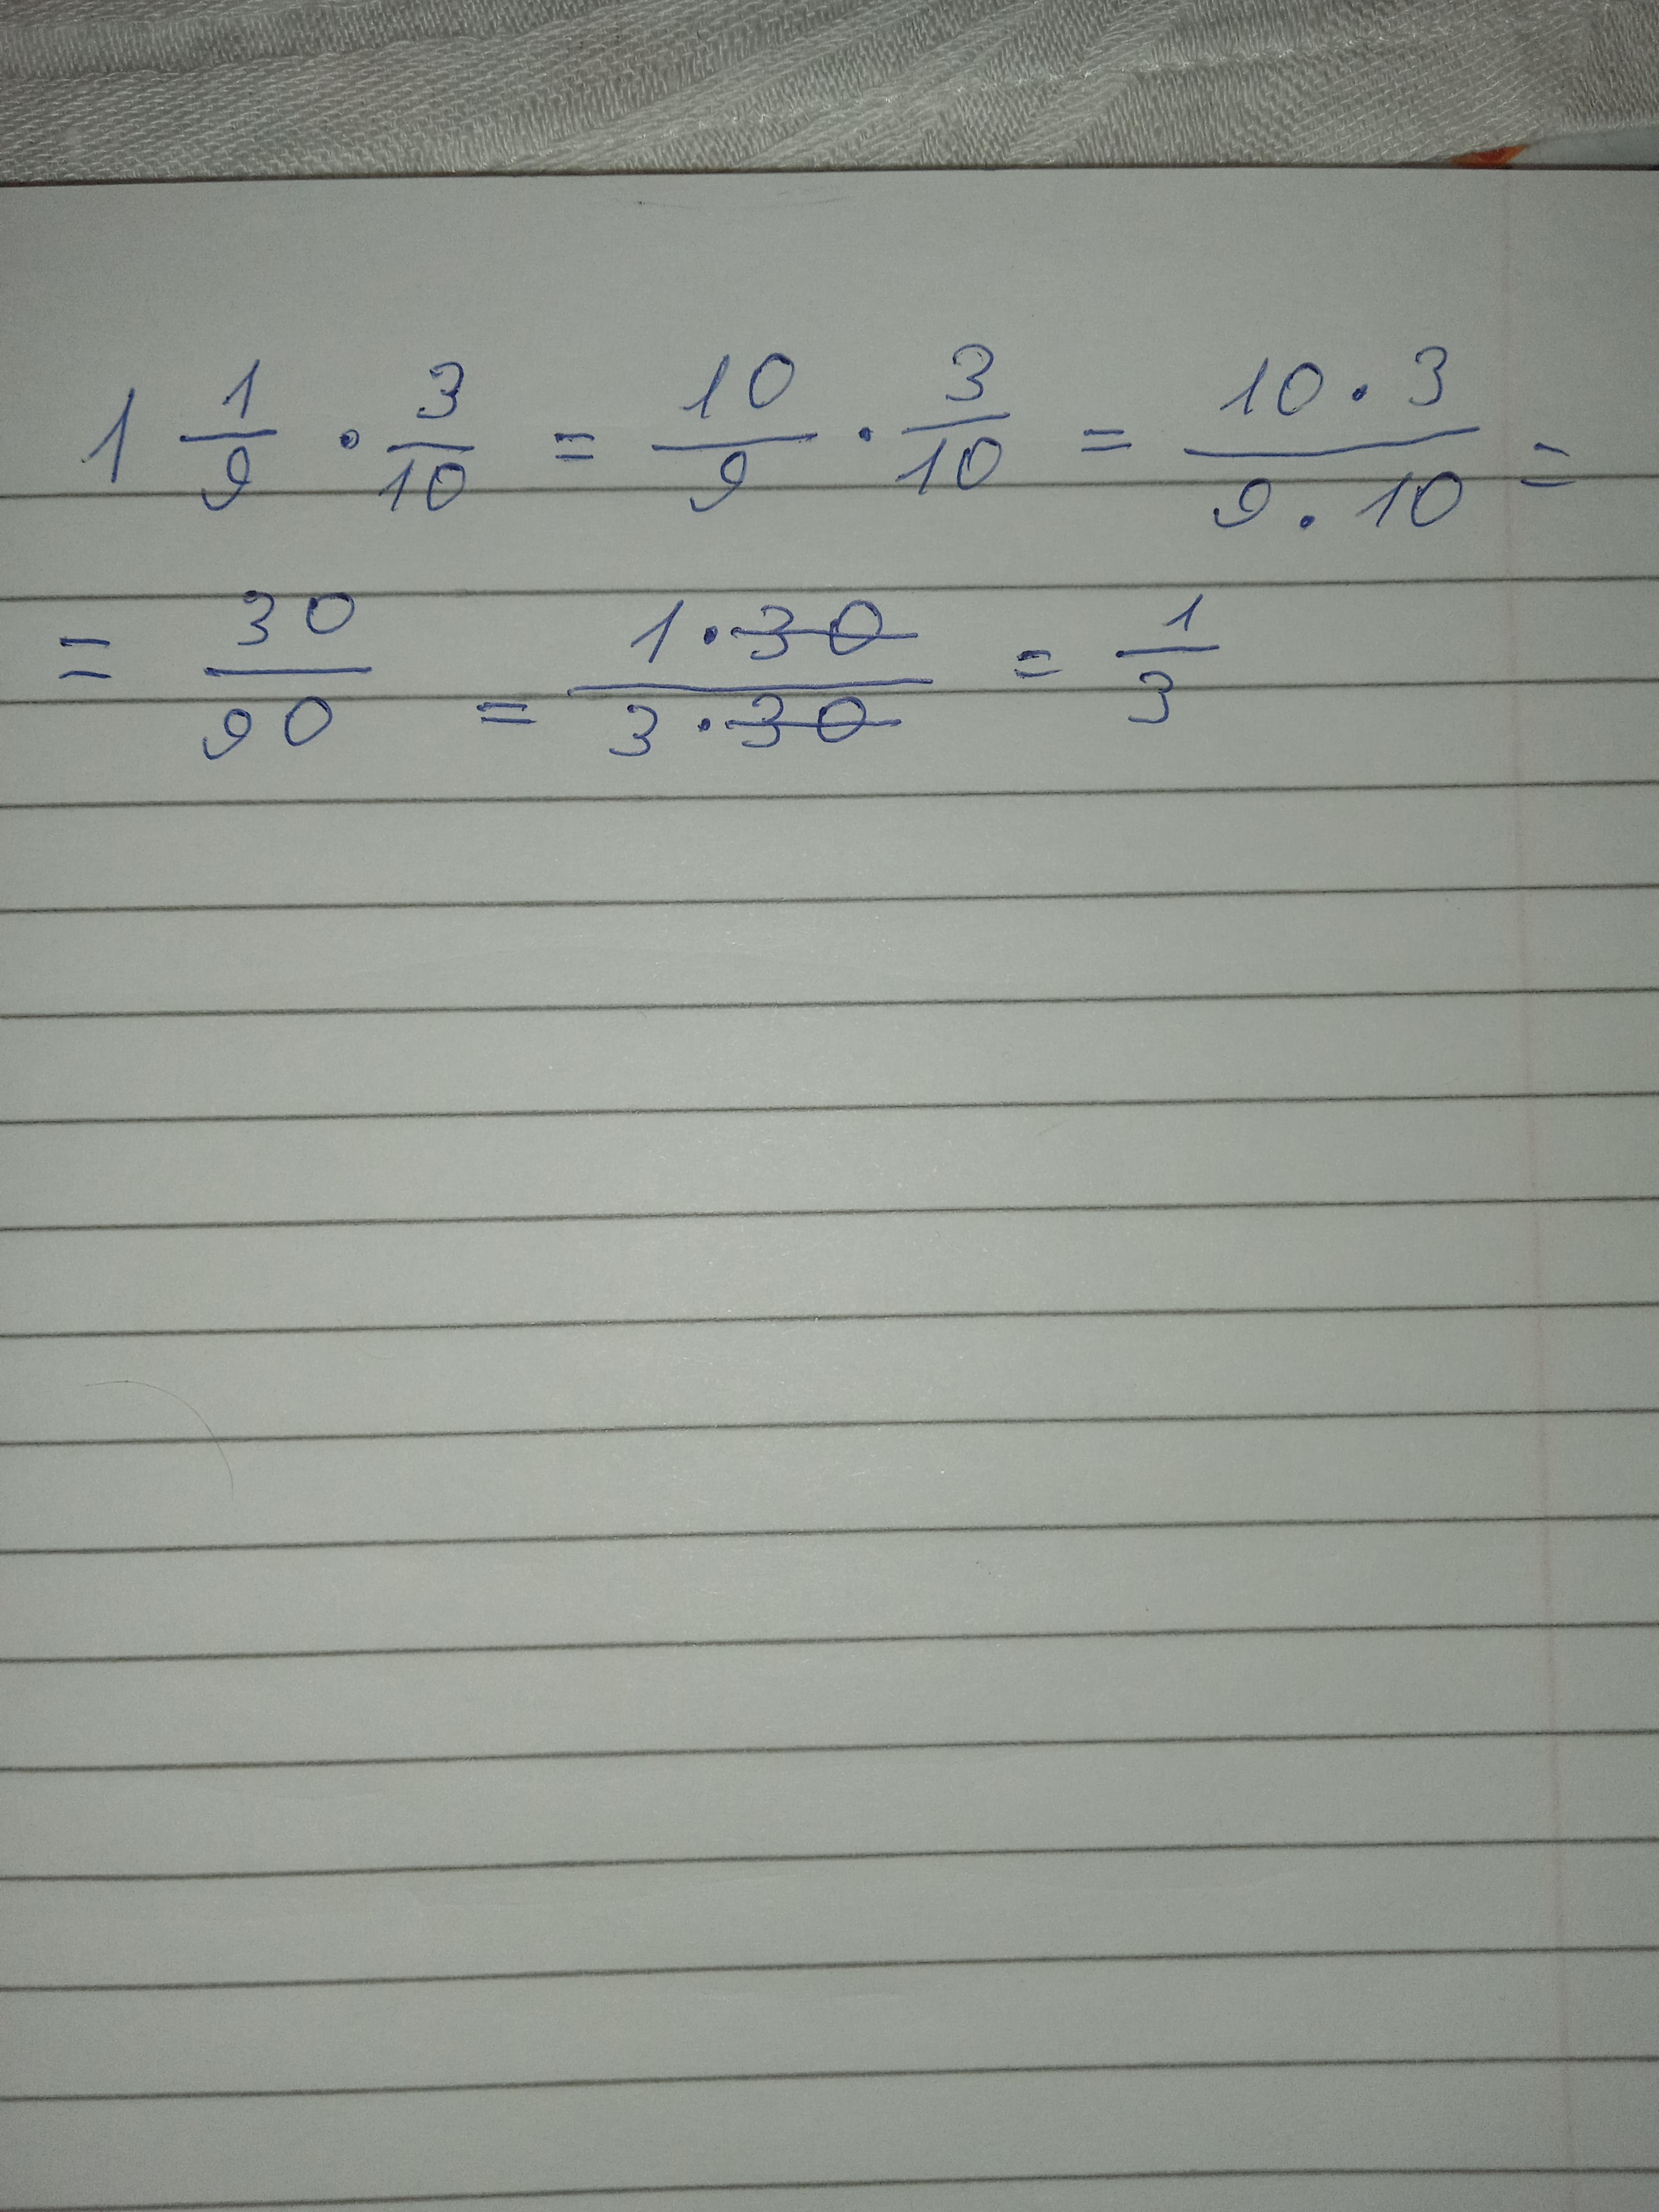 1 1/9 · 3/10 = 10/9 · 3/10 = 10·3/9·10 =
= 30/90 = 1·30/3·30 = 1/3